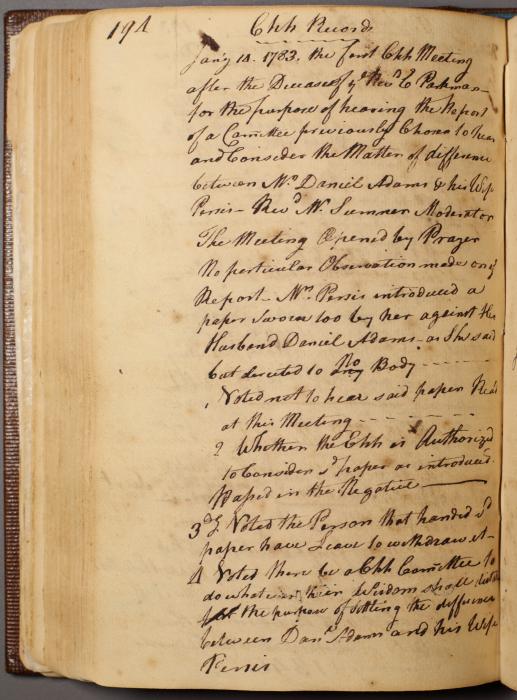 194 Chh Records
Jan'y 14. 1783. the first Chh Meeting
after the Decease of ye Revd E Parkman
for the purpose of hearing the Report
of a Comittee previously Chosen to hear
and Consider the Matter of difference
between Mr. Daniel Adams & his Wife
Persis - Revd Mr. Sumner Moderator
The Meeting Opened by Prayer
No particular Observation made on ye
Report - Mrs. Persis introduced a
paper sworn too by her against her
Husband Daniel Adams - as She said
but directed to no Body
1 Voted not to hear said paper Read
at this Meeting
2 Whether the Chh is Authorized
to Consider sd paper as introduced.
Passed in the Negative
3dly Voted the Person that handed sd
paper have Leave to withdraw it -
4 Voted there be a Chh Comittee to
do whatever their Wisdom shall
for the purpose of settling the difference
between Danl Adams and his Wife
Persis